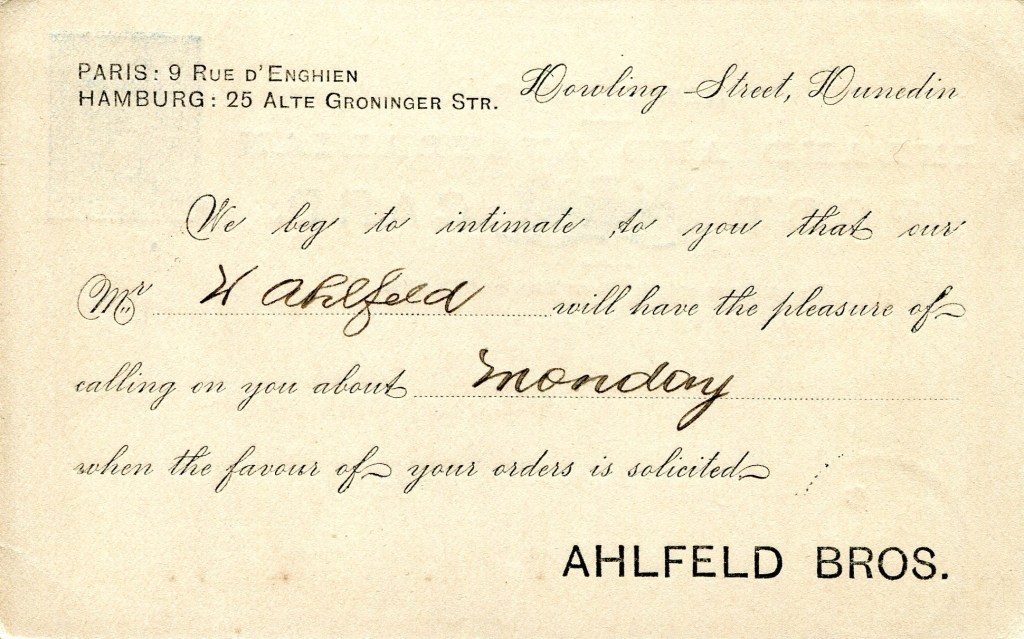 PARIS: 9 RUE D'ENGHIEN
HAMBURG: 25 ALTE GRONINGER STR.
Dowling Street, Dunedin
We beg to intimate to you that our
Mr H Ahlfeld will have the pleasure of
calling on you about Monday
when the favour of your orders is solicited
AHLFELD BROS.